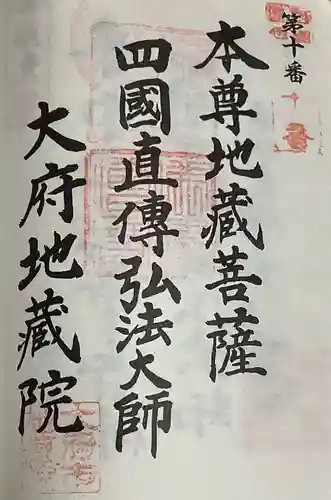 第十番
本尊地藏菩薩
四國直傳弘法大師
大府地藏院